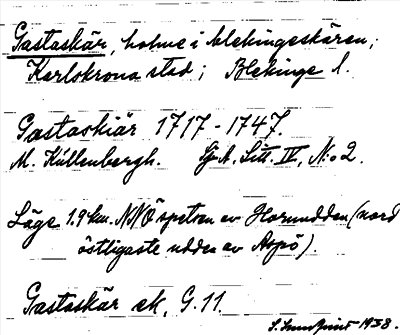 Gastaskär, holme i Blekingeskären;
Karlskrona stad; Blekinge l.
Gastaskiär 1717-1747.
M. Küllenbergh. Sj A, Litt. IV, N:o 2.
Läge 1.9 km. NNÖ spetsen av Hornudden (nord
östligaste udden av Aspö).
Gastaskär ek, G.11.
S. 1938.